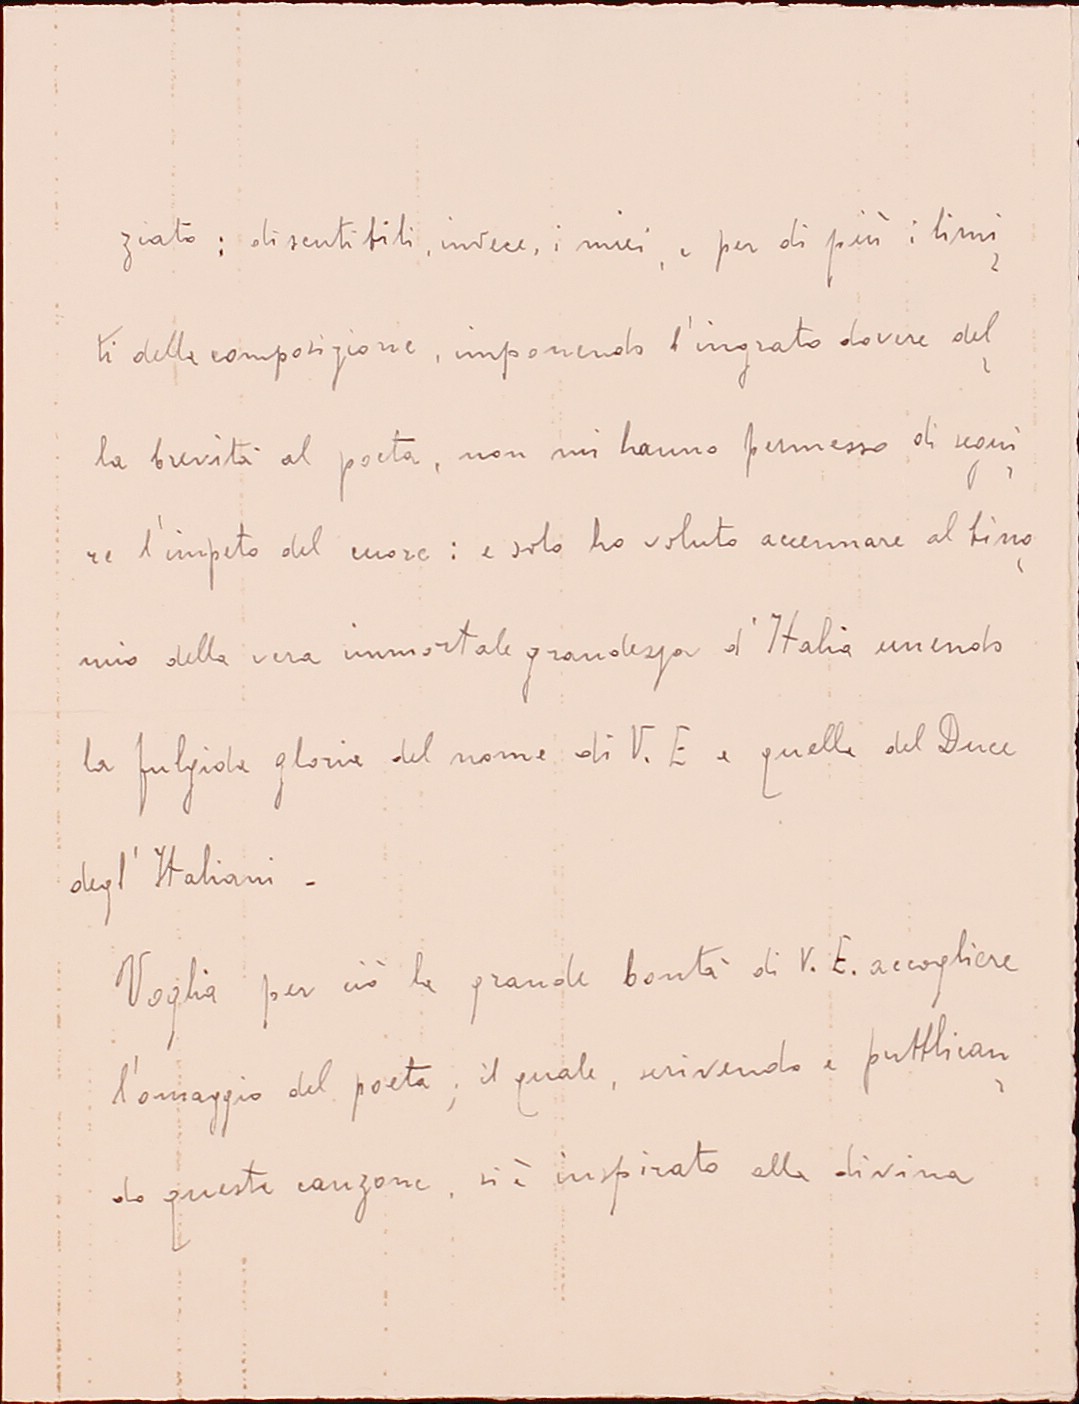 ziato ; discutibili, invece, i miei, e per di più i limi
ti della composizione, imponendo l'ingrato dovere del
la brevità al poeta, non mi hanno permesso di segui
re l'impeto del cuore : e solo ho voluto accennare al bino
mio della vera immortale grandezza d'Italia unendo
la fulgida gloria del nome di V. E e quella del Duce
degl' Italiani -
Voglia per ciò la grande bontà di V. E. accogliere
l'omaggio del poeta; il quale, scrivendo e pubblican
do questa canzone, si è inspirato alla divina